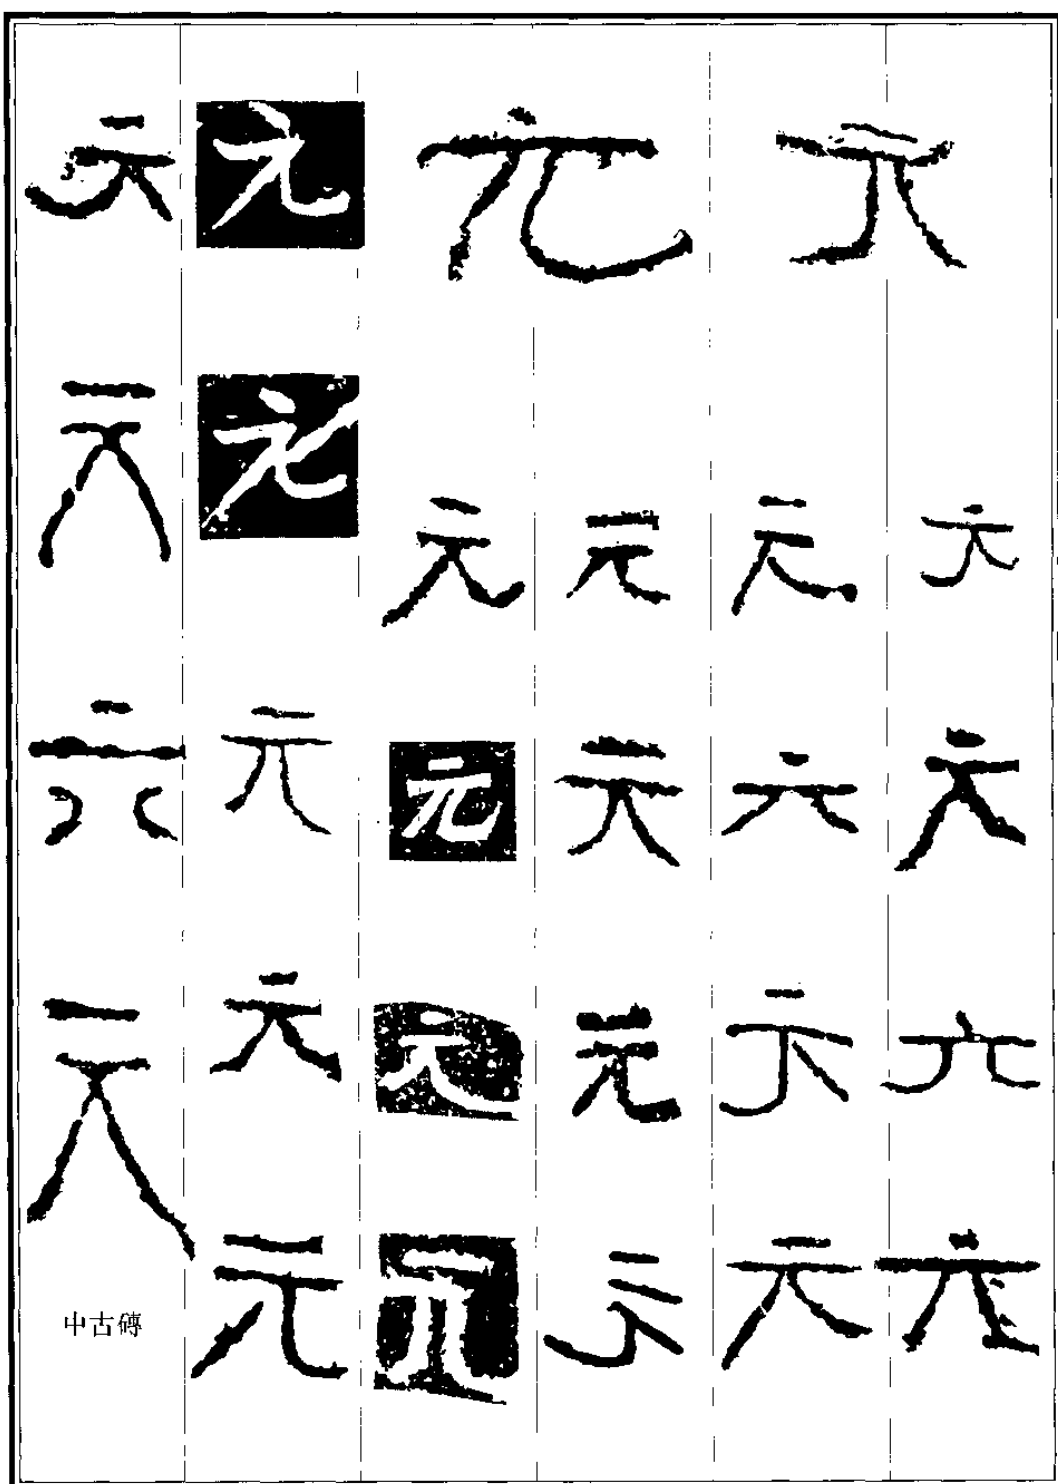 元元元元元
元元元元
元元元元元
元元元元
元元元元元
元元元元
中古磚